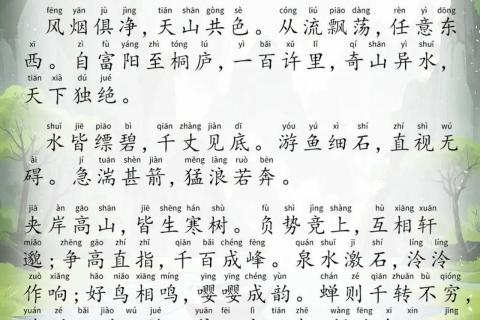 fēng yān jù jìng tiān shān gòng sè cóng liú piāo dàng rèn yì dōng
风烟俱净，天山共色。从流飘荡，任意东
xī zì fù yáng zhì tóng lú yì bǎi xǔ lǐ qí shān yì shuǐ
西。自富阳至桐庐，一百许里，奇山异水，
tiān xià dú jué
天下独绝。
shuǐ jiē piǎo bì qiān zhàng jiàn dǐ yóu yú xì shí zhí shì wú
水皆缥碧，千丈见底。游鱼细石，直视无
ài jí tuān shèn jiàn měng làng ruò bēn
碍。急湍甚箭，猛浪若奔。
jiā àn gāo shān jiē shēng hán shù fù shì jìng shàng hù xiāng xuān
夹岸高山，皆生寒树。负势竞上，互相轩
miǎo zhēng gāo zhí zhǐ qiān bǎi chéng fēng quán shuǐ jī shí líng líng
邈；争高直指，千百成峰。泉水激石，泠泠
zuò xiǎng hǎo niǎo xiāng míng yīng yīng chéng yùn chán zé qiān zhuàn bù qióng
作响；好鸟相鸣，嘤嘤成韵。蝉则千转不穷，